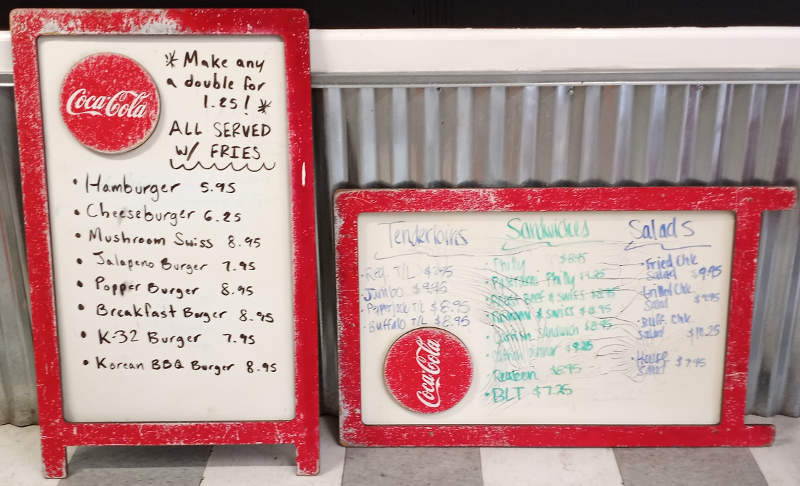 Coca-Cola
* Make any
a double for
1.25! *
ALL SERVED
W/ FRIES
• Hamburger 5.95
• Cheeseburger 6.25
• Mushroom Swiss 8.95
• Jalapeno Burger 7.95
• Popper Burger 8.95
• Breakfast Burger 8.95
• K-32 Burger 7.95
• Korean BBQ Burger 8.95
Tenderloins
• Reg. T/L
• Jumbo
• Pepperjack T/L $8.95
• Buffalo T/L $8.95
Coca-Cola
Sandwiches
• Philly
Philly
Beef & Swiss
& Swiss
Sandwich
Dinner
8.95
• BLT $7.25
Salads
• Fried Chk
Salad $9.95
• Grilled Chk
Salad
• Buff. Chk
Salad
• House
Salad $7.95